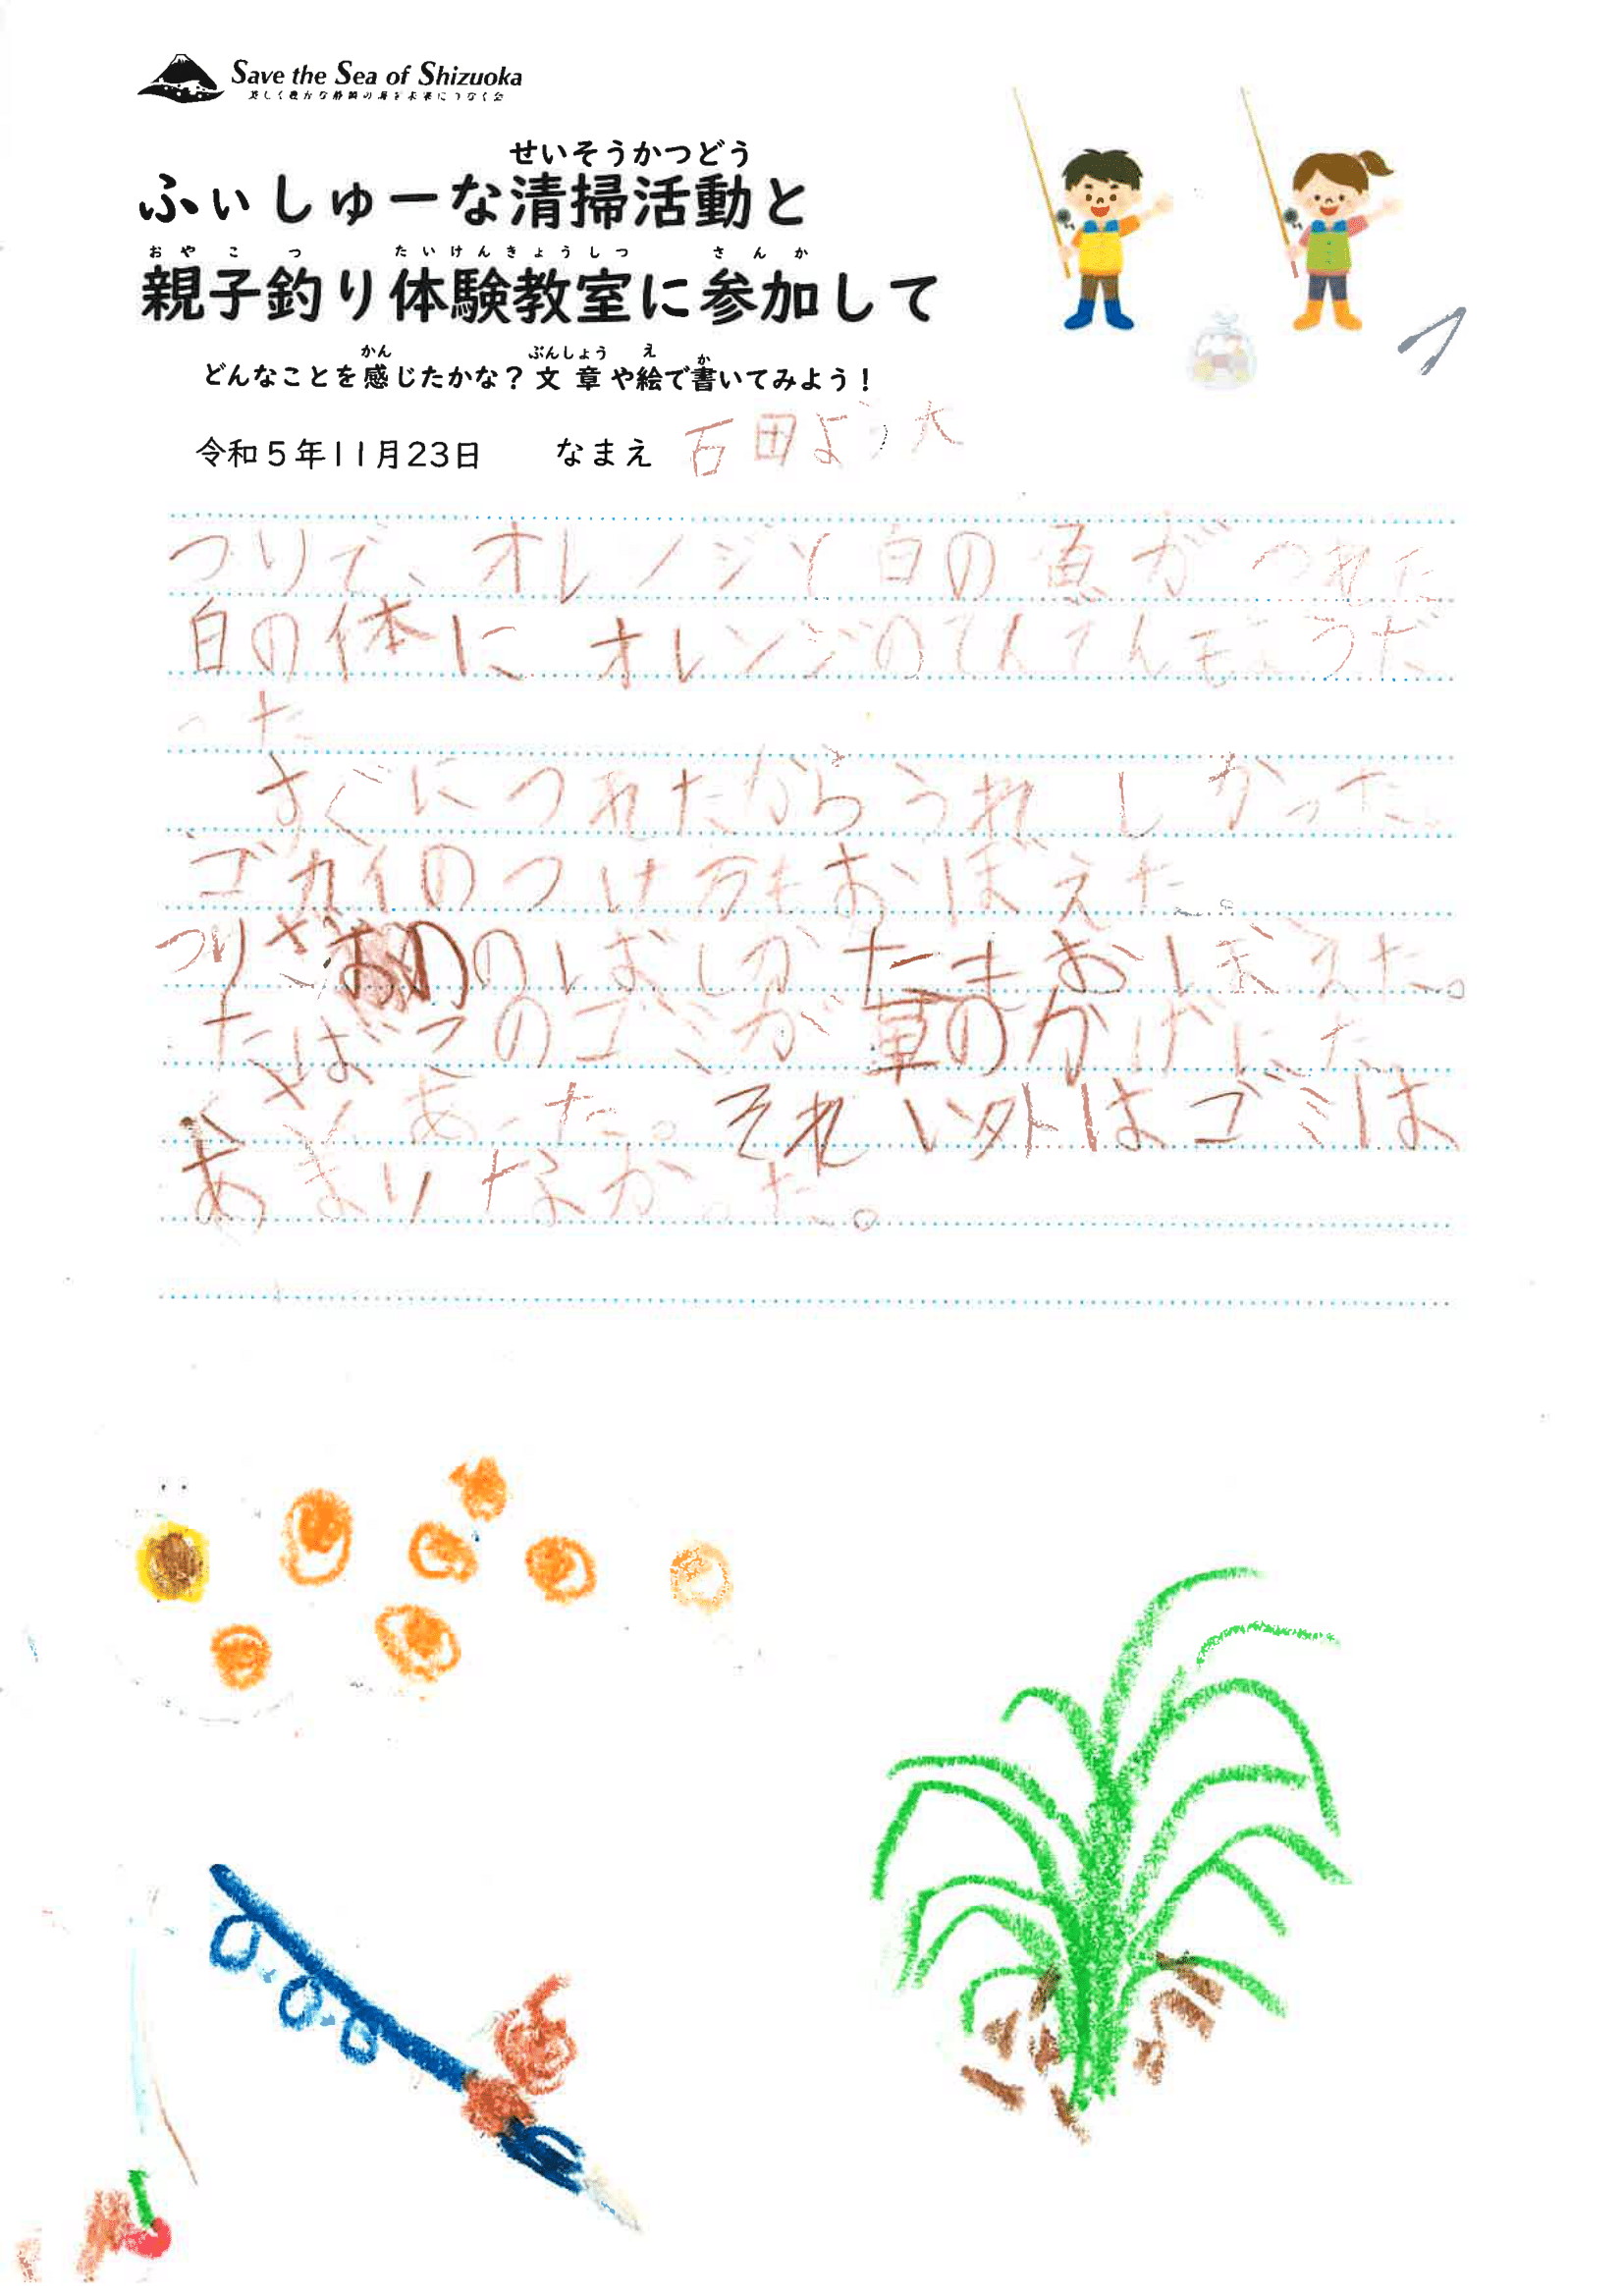 Save the Sea of Shizuoka
美しく豊かな静岡の海を未来につなぐ会
せいそうかつどう
ふぃしゅーな清掃活動と
おやこつ たいけんきょうしつ さんか
親子釣り体験教室に参加して
かん ぶんしょう え か
どんなことを感じたかな?文章や絵で書いてみよう!
令和5年11月23日 なまえ 石田よう大
つりで、オレンジと白の魚がつれた
白の体に オレンジのてんてんもようだ
った
すぐにつれたからうれしかった。
ゴカイのつけ方もおぼえた。
つりざおののばしかたもおぼえた。
たばこのゴミが草のかげにた
くさんあった。それい外はゴミは
あまりなかった。